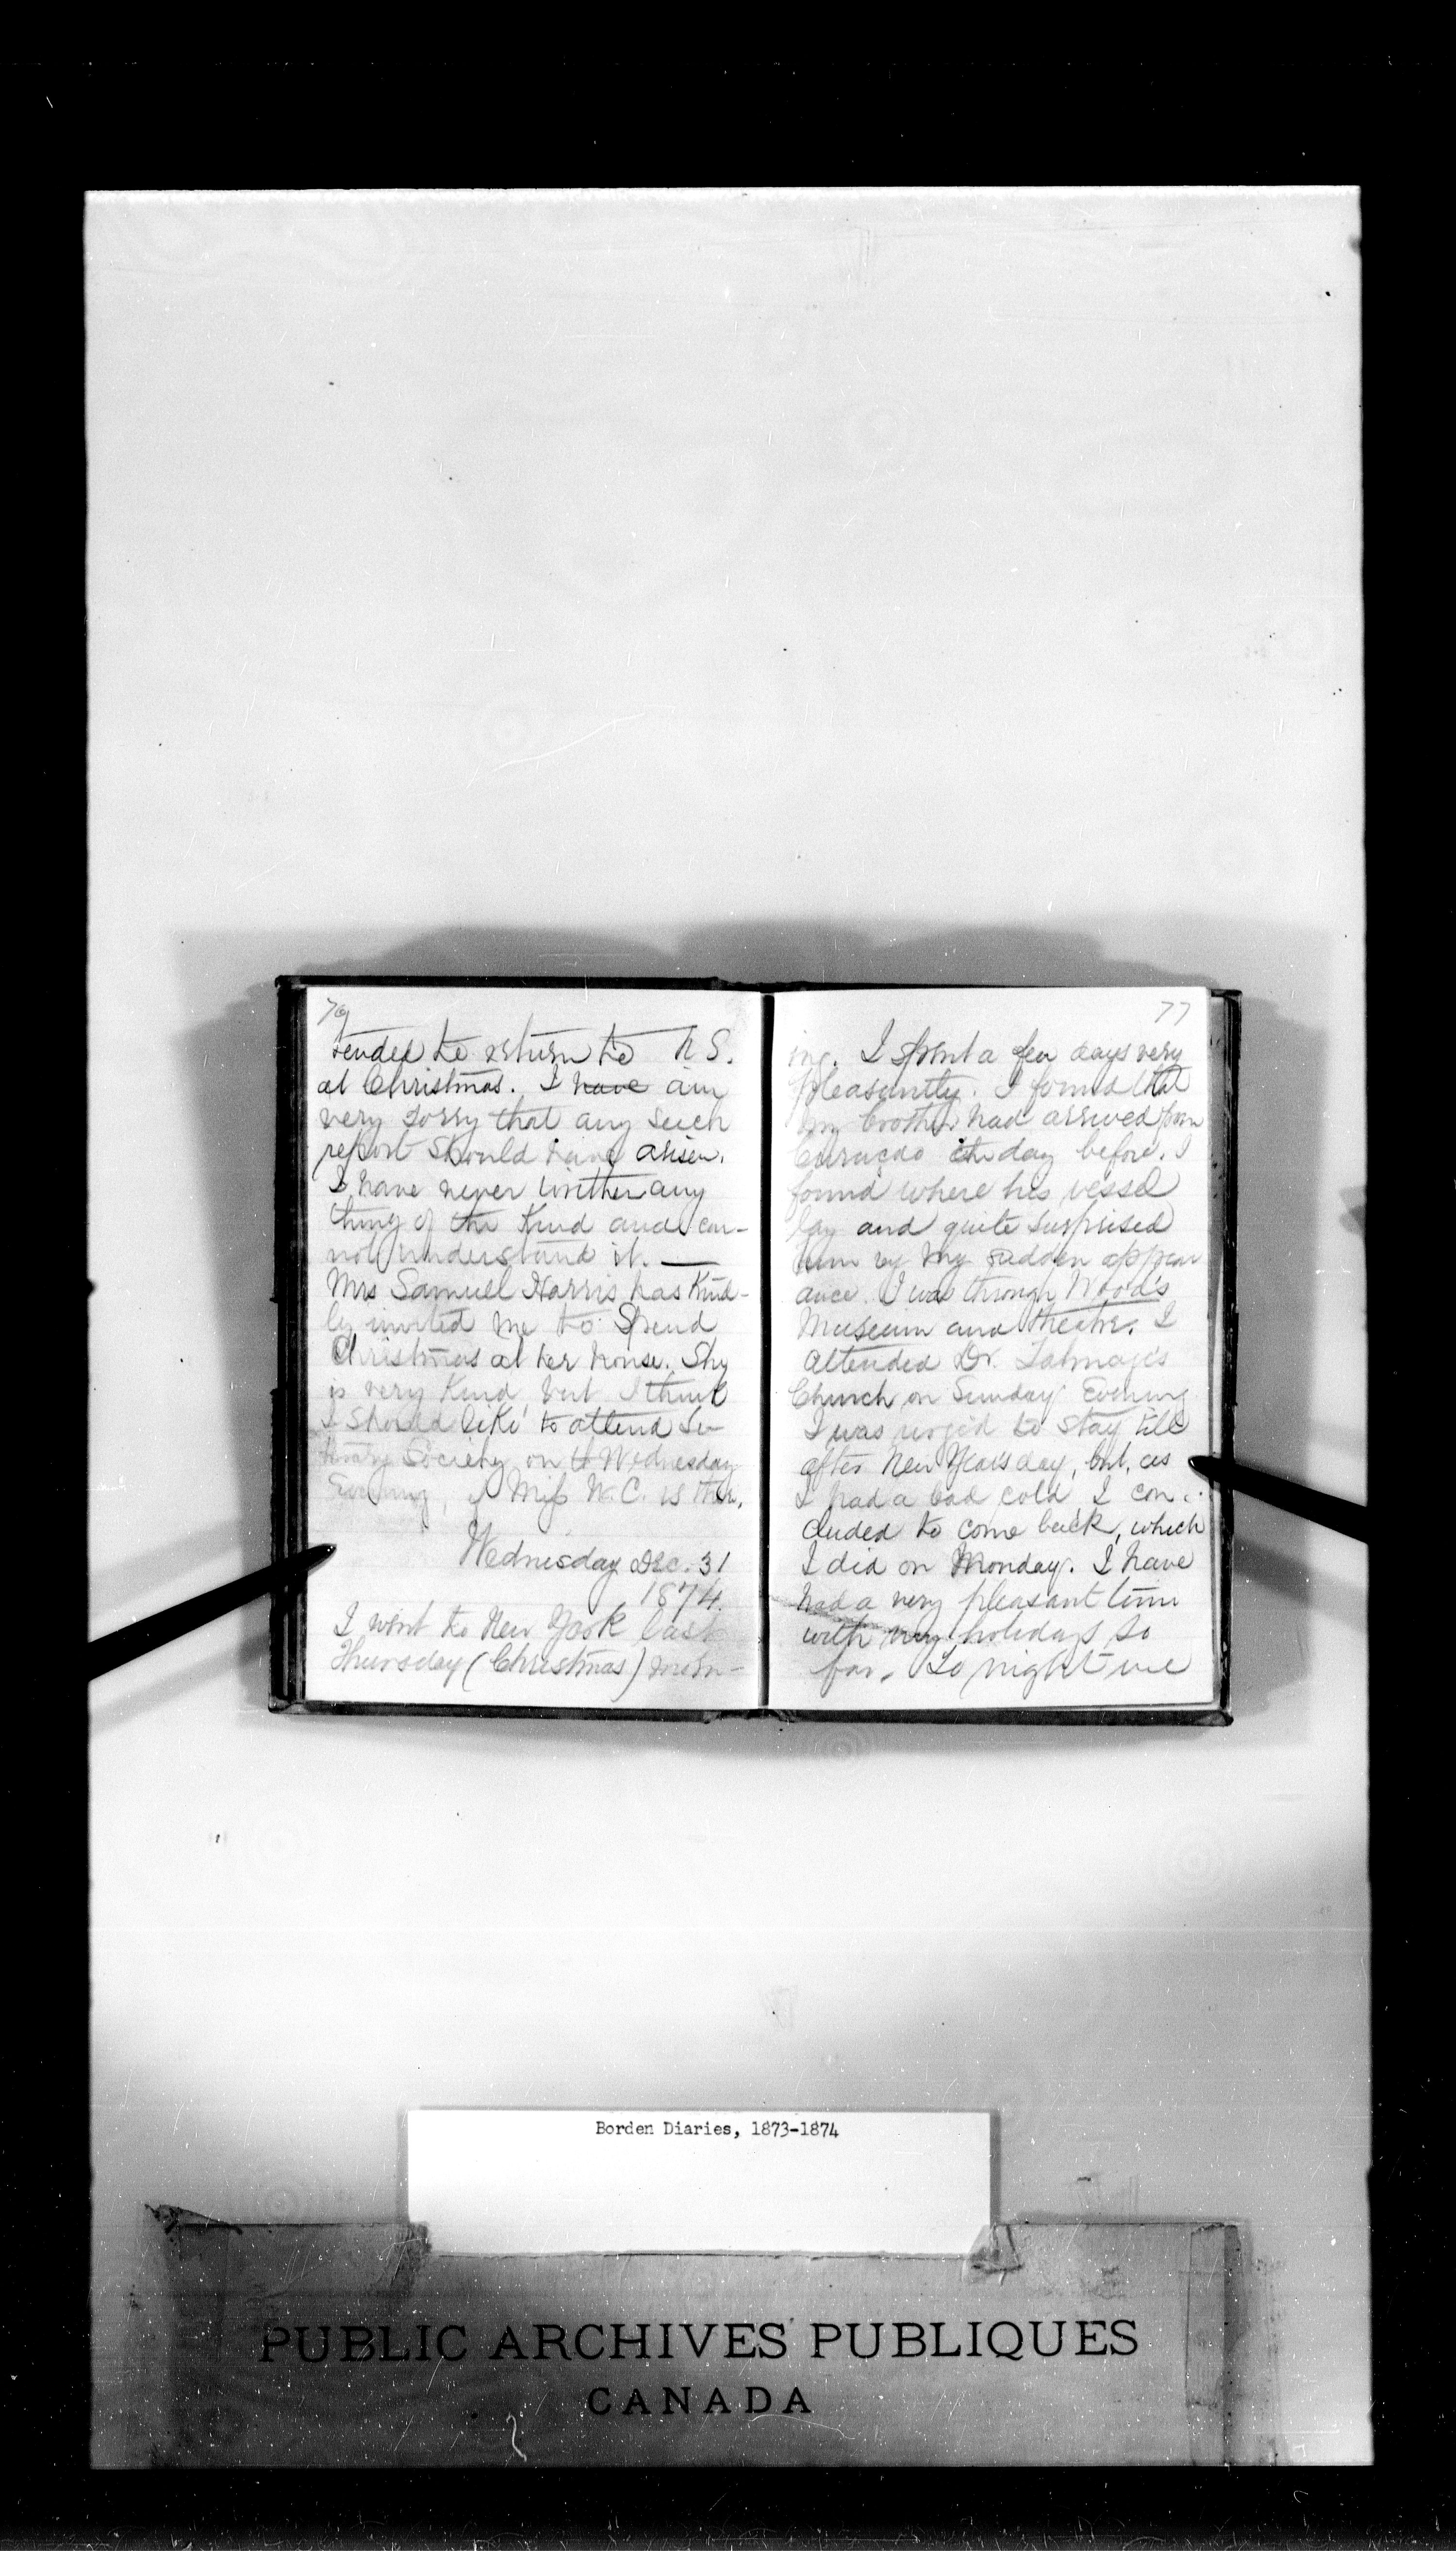 76
tended to return to N S.
at Christmas. I have am
very sorry that any such
report should have arisen.
I have never written any
thing of the kind and can-
not understand it. —
Mrs Samuel Harris has kind-
ly invited me to spend
Christmas at her house. She
is very kind, but I think
I should like to attend Li-
terary Society on Wednesday
Evening, if Miss W. C. is there.
Wednesday Dec. 31
1874.
I went to New York last
Thursday (Christmas) morn-
77
ing. I spent a few days very
pleasantly. I found that
my brother had arrived from
Curacao the day before. I
found where his vessel
lay and quite surprised
him by my sudden appear
ance. I was through Wood's
Museum and theatre. I
attended Dr. Talmage's
Church on Sunday Evening
I was urged to stay till
after New Years day, but, as
I had a bad cold I con-
cluded to come back, which
I did on Monday. I have
had a very pleasant time
with my holidays so
far. To night we
Borden Diaries, 1873-1874
PUBLIC ARCHIVES PUBLIQUES
CANADA